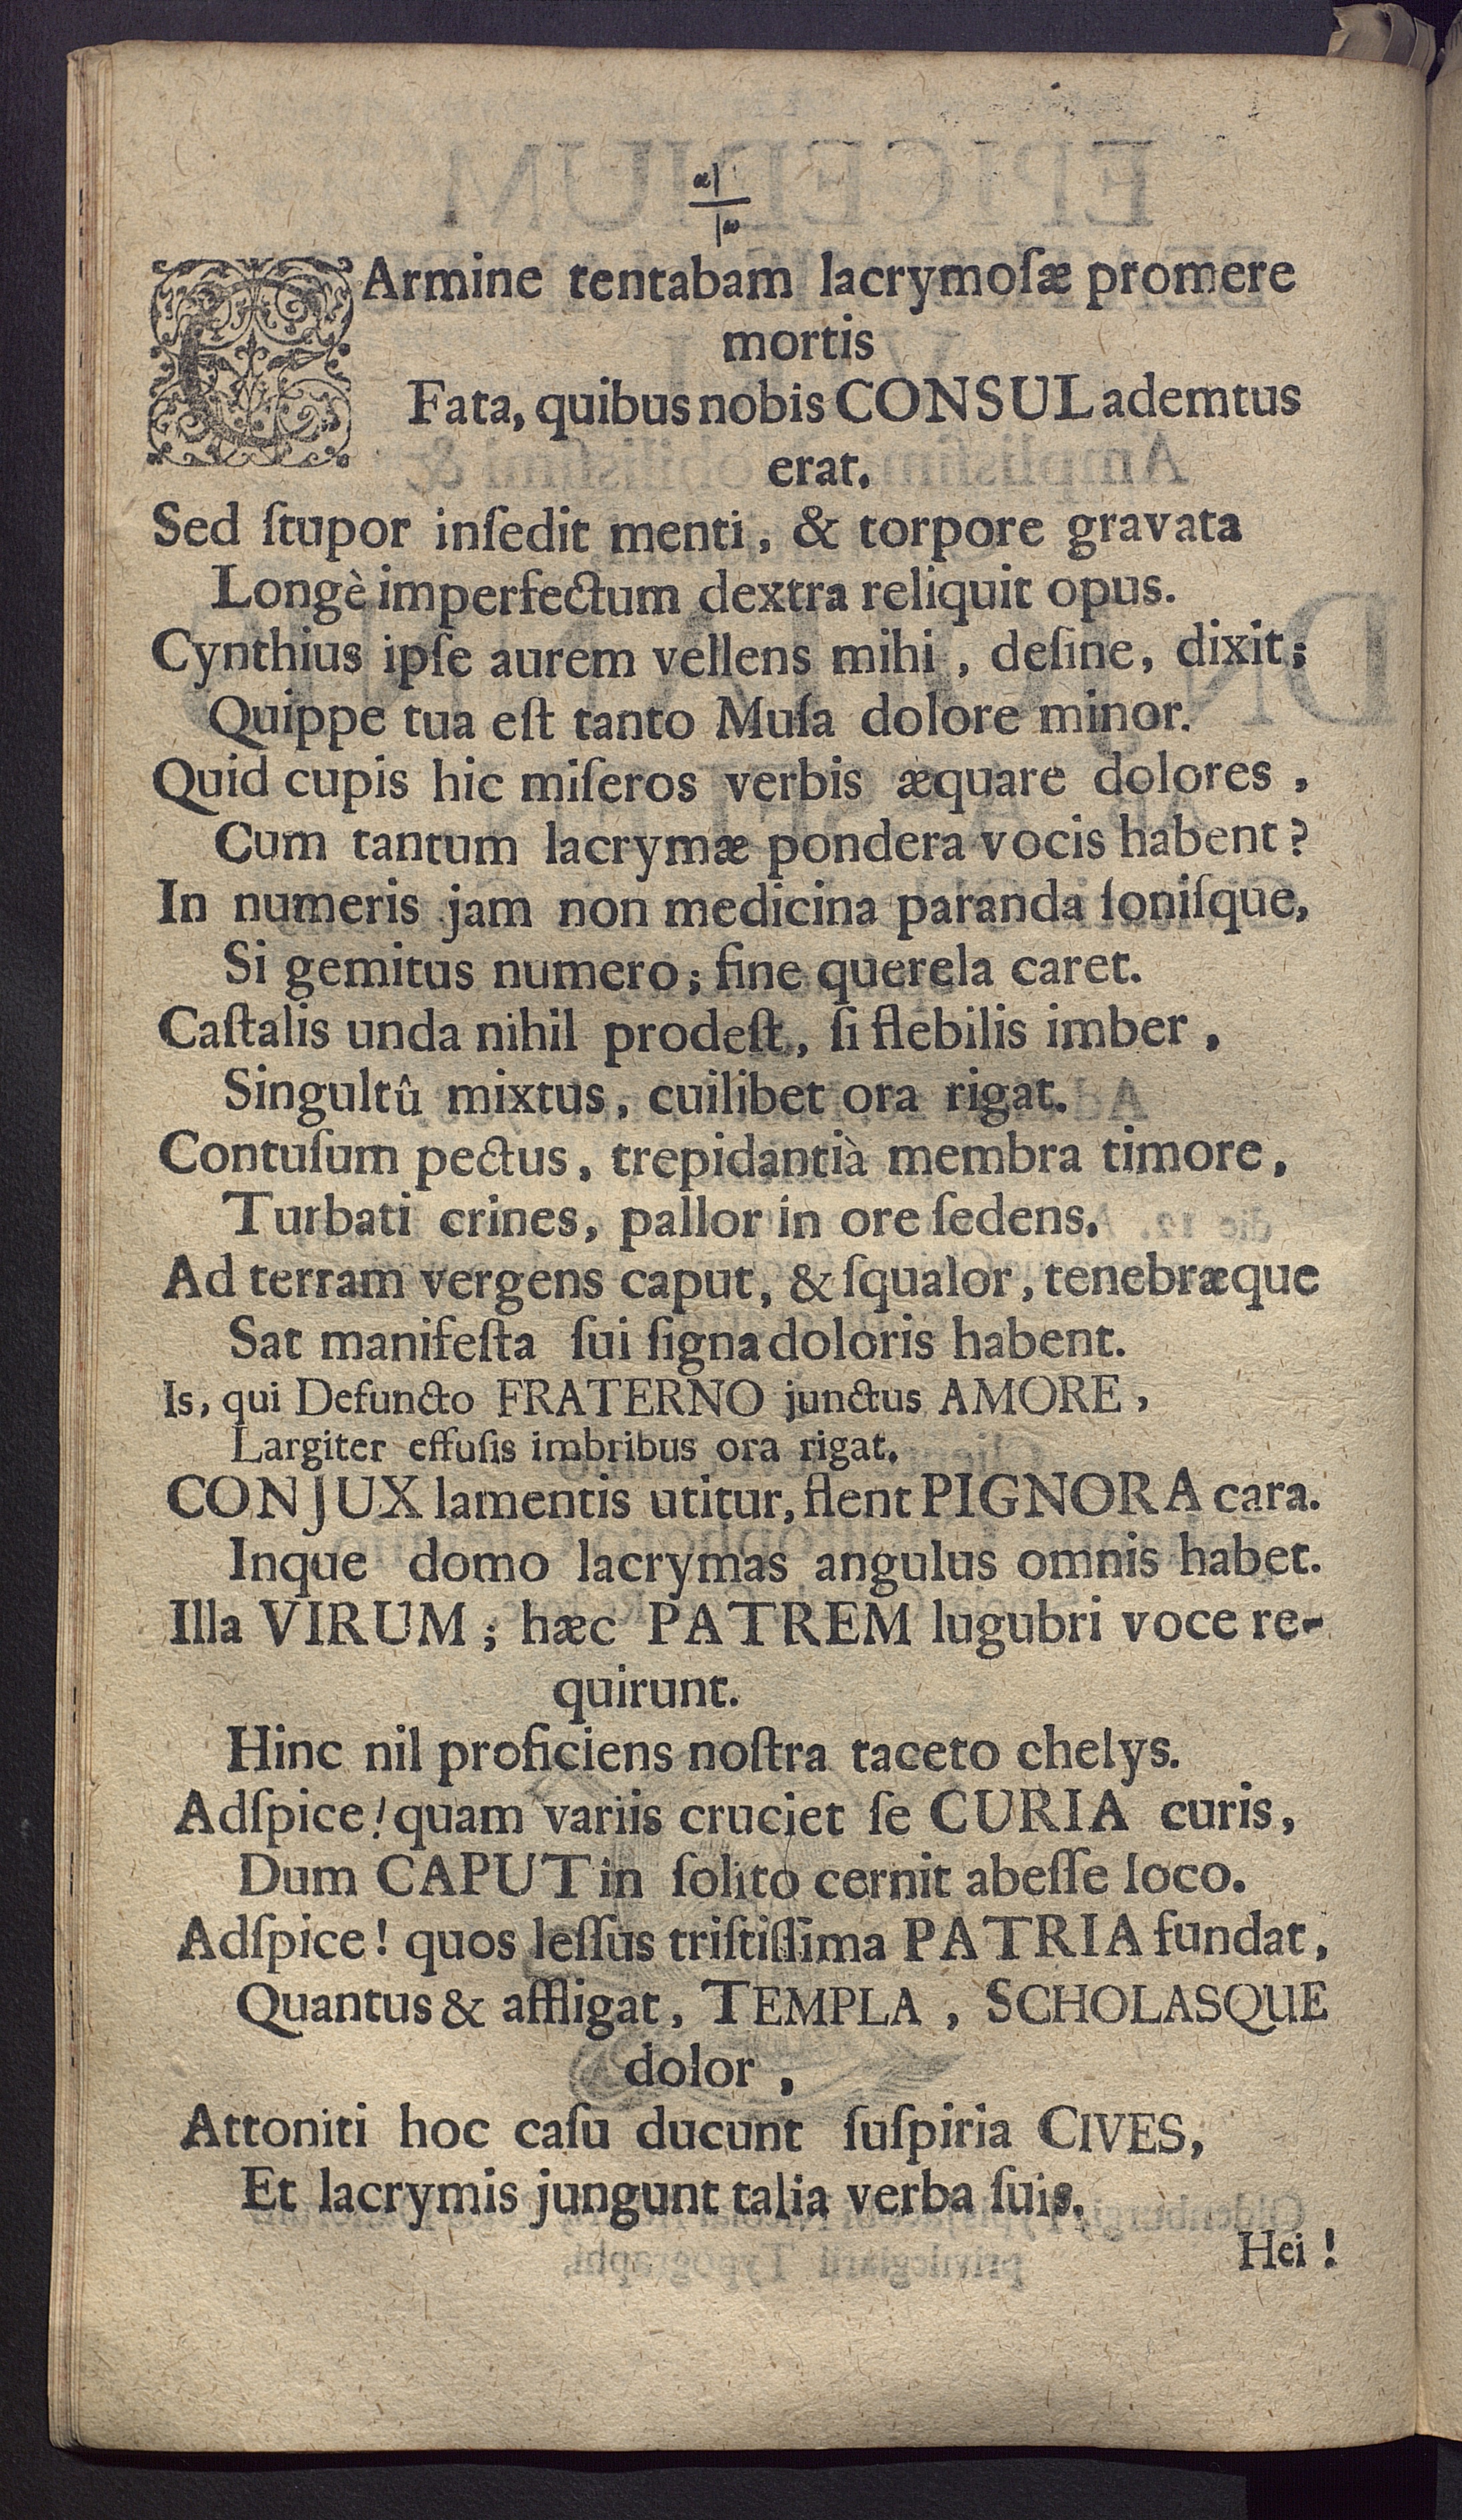 CArmine tentabam lacrymoſæ promere
mortis
Fata, quibus nobis CONSUL ademtus
erat.
Sed ſtupor inſedit menti, & torpore gravata
Longè imperfectum dextra reliquit opus.
Cynthius ipſe aurem vellens mihi, deſine, dixit;
Quippe tua eſt tanto Muſa dolore minor.
Quid cupis hic miſeros verbis æquare dolores,
Cum tantum lacrymæ pondera vocis habent?
In numeris jam non medicina paranda ſoniſque,
Si gemitus numero; fine querela caret.
Caſtalis unda nihil prodeſt, ſi flebilis imber,
Singultû mixtus, cuilibet ora rigat.
Contuſum pectus, trepidantià membra timore,
Turbati crines, pallor in ore ſedens.
Ad terram vergens caput, & ſqualor, tenebræque
Sat manifeſta ſui ſigna doloris habent.
Is, qui Defuncto FRATERNO junctus AMORE,
Largiter effuſis imbribus ora rigat.
CONJUX lamentis utitur, flent PIGNORA cara.
Inque domo lacrymas angulus omnis habet.
Illa VIRUM; hæc PATREM lugubri voce re-
quirunt.
Hinc nil proficiens noſtra taceto chelys.
Adſpice! quam variis cruciet ſe CURIA curis,
Dum CAPUT in ſolito cernit abeſſe loco.
Adſpice! quos leſſus triſtiſſima PATRIA fundat,
Quantus & affligat, TEMPLA, SCHOLASQUE
dolor,
Attoniti hoc caſu ducunt ſuſpiria CIVES,
Et lacrymis jungunt talia verba ſuis.
Hei!